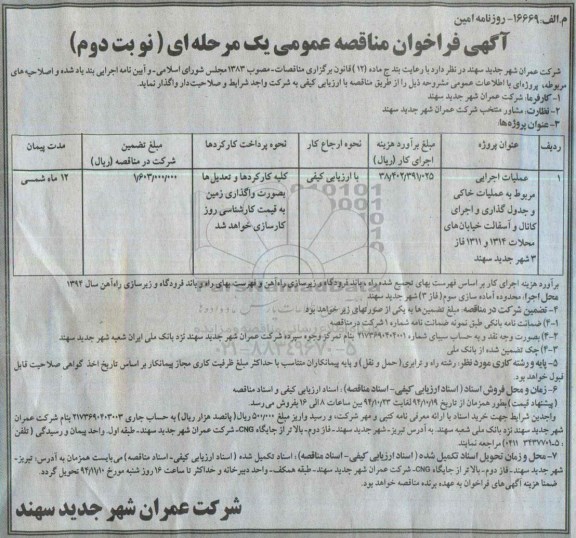 م.الف:۱۶۶۶۹- روزنامه امین
آگهی فراخوان مناقصه عمومی یک مرحله ای ( نوبت دوم)
شرکت عمران شهر جدید سهند در نظر دارد با رعایت بند ج ماده (۱۲) قانون برگزاری مناقصات- مصوب ۱۳۸۳ مجلس شورای اسلامی- و آیین نامه اجرایی بند یاد شده و اصلاحیه های
مربوطه، پروژه‌ای با اطلاعات عمومی مشروحه ذیل را از طریق مناقصه با ارزیابی کیفی به شرکت واجد شرایط و صلاحیت‌دار واگذار نماید.
۱- کارفرما: شرکت عمران شهر جدید سهند
۲- نظارت: مشاور منتخب شرکت عمران شهر جدید سهند
۳- عنوان پروژه‌ها:
ردیف عنوان پروژه مبلغ برآورد هزینه اجرای کار (ریال) نحوه ارجاع کار نحوه پرداخت کارکردها مبلغ تضمین شرکت در مناقصه (ریال) مدت پیمان
۱ عملیات اجرایی مربوط به عملیات خاکی و جدول گذاری و اجرای کانال و آسفالت خیابان‌های محلات ۱۳۱۴ و ۱۳۱۱ فاز ۳ شهر جدید سهند ۳۸/۴۰۲/۳۹۱/۰۲۵ با ارزیابی کیفی کلیه کارکردها و تعدیل‌ها بصورت واگذاری زمین به قیمت کارشناسی روز کارسازی خواهد شد ۱/۶۰۳/۰۰۰/۰۰۰ ۱۲ ماه شمسی
برآورد هزینه اجرای کار بر اساس فهرست بهای تجمیع شده راه، باند فرودگاه و زیرسازی راه آهن و فهرست بهای راه و باند فرودگاه و زیرسازی راه‌آهن سال ۱۳۹۲
محل اجرا: محدوده آماده سازی سوم (فاز ۳) شهر جدید سهند
۴- تضمین شرکت در مناقصه: مبلغ تضمین‌ها به یکی از صورتهای زیر خواهد بود
۴-۱) ضمانت نامه بانکی طبق نمونه ضمانت نامه شماره ۱ شرکت در مناقصه
۴-۲) بصورت وجه نقد و به حساب سیبای شماره ۲۱۷۳۶۹۰۴۰۴۰۰۱ بنام تمرکز وجوه سپرده شرکت عمران شهر جدید سهند نزد بانک ملی ایران شعبه شهر جدید سهند
۴-۳) چک تضمین شده از بانک ملی
۵- پایه و رشته کاری مورد نظر: رشته راه و ترابری (حمل و نقل) و پایه پیمانکاران متناسب با حداکثر مبلغ ظرفیت کاری مجاز پیمانکار بر اساس تاریخ اخذ گواهی صلاحیت قابل
قبول خواهد بود.
۶- زمان و محل فروش اسناد ( اسناد ارزیابی کیفی- اسناد مناقصه) : اسناد ارزیابی کیفی و اسناد مناقصه
(پیشنهاد قیمت) بطور همزمان از تاریخ ۹۲/۱۰/۱۹ لغایت ۹۲/۱۰/۲۳ بین ساعات ۸ الی ۱۶ بفروش می‌رسد.
واجدین شرایط جهت خرید اسناد با ارائه معرفی نامه کتبی و مهر شرکت، و رسید واریز مبلغ ۵۰۰/۰۰۰ ریال( پانصد هزار ریال) به حساب جاری ۲۱۷۳۶۹۰۲۰۳۰۰۳ بنام شرکت عمران
شهر جدید سهند نزد بانک ملی شعبه سهند، به آدرس تبریز- شهر جدید سهند- فاز دوم- بالاتر از جایگاه CNG- شرکت عمران شهر جدید سهند- طبقه اول- واحد پیمان و رسیدگی ( تلفن
: ۵-۳۴۳۷۷۰۱ ۰۴۱۱) مراجعه نمایند.
۷- محل و زمان تحویل اسناد تکمیل شده ( اسناد ارزیابی کیفی- اسناد مناقصه): اسناد تکمیل شده ( اسناد ارزیابی کیفی- اسناد مناقصه) می‌بایست همزمان به آدرس: تبریز-
شهر جدید سهند- فاز دوم- بالاتر از جایگاه CNG- شرکت عمران شهر جدید سهند- طبقه همکف- واحد دبیرخانه و حداکثر تا ساعت ۱۶ روز شنبه مورخ ۹۲/۱۱/۱۰ تحویل گردد.
ضمنا هزینه آگهی‌های فراخوان به عهده برنده مناقصه خواهد بود.
شرکت عمران شهر جدید سهند